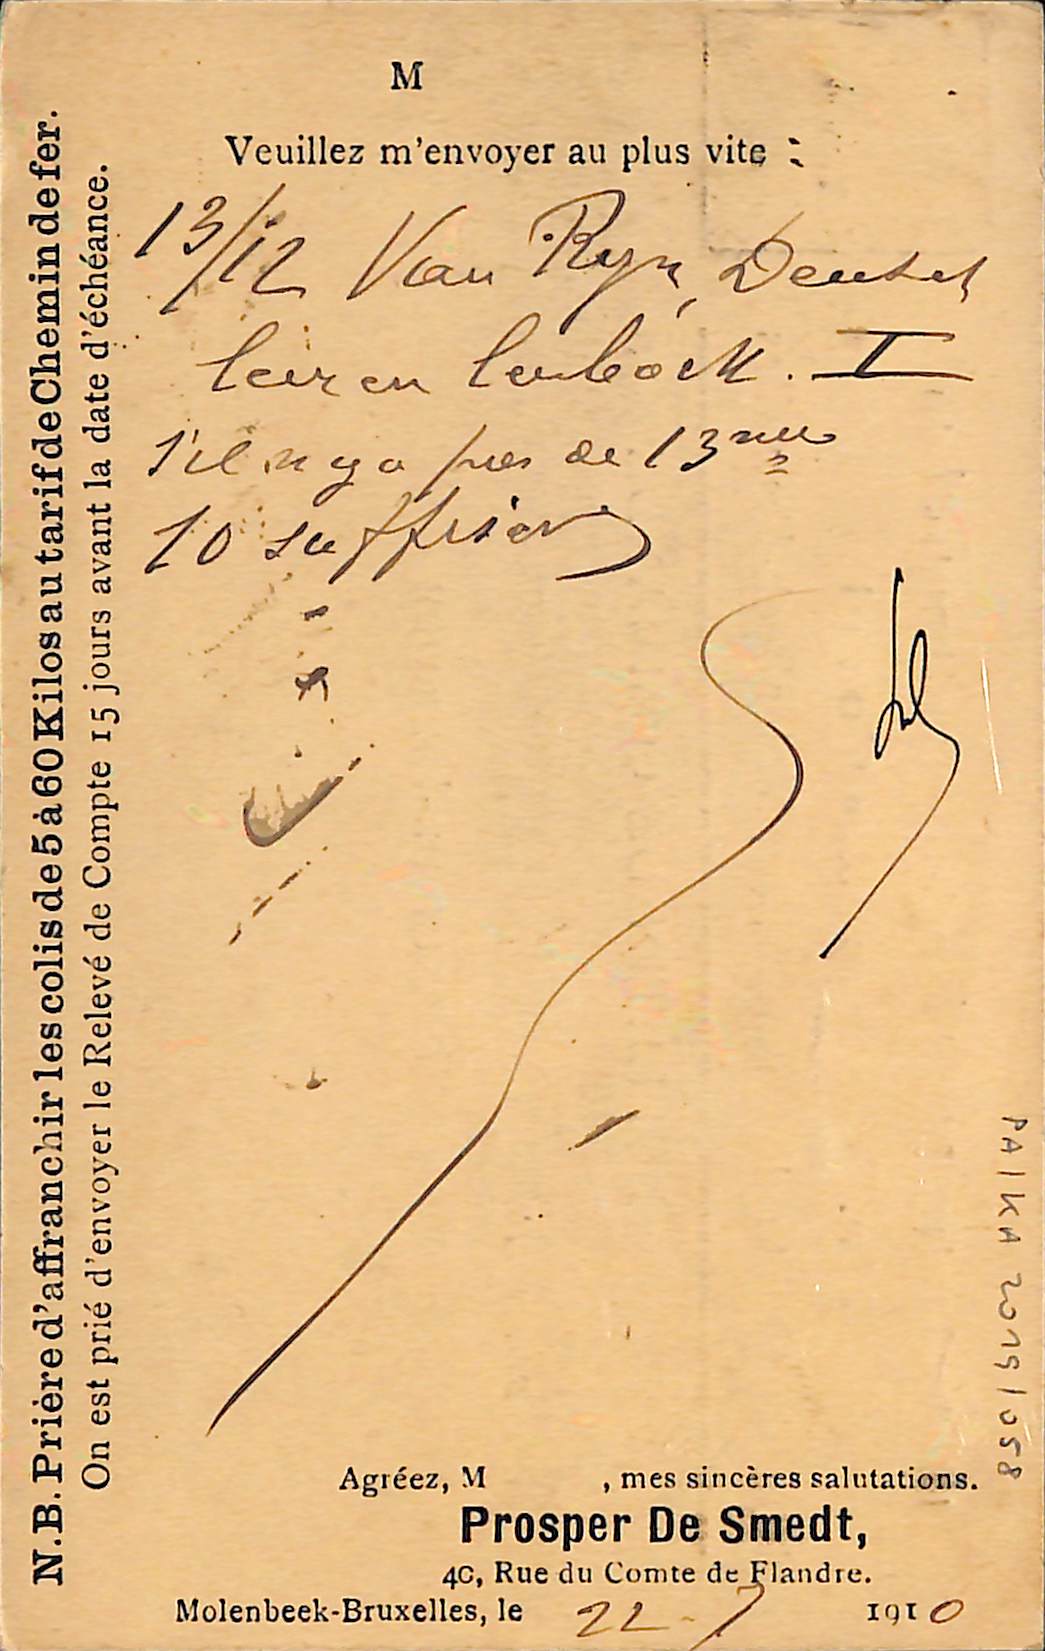 M
Veuillez m'envoyer au plus vite :
13/12 Van Ryn, Deutsch
leer en lesboek. I
s'il n'y a pas de 13me
10 suffisent
Agréez, M , mes sincères salutations.
Prosper De Smedt,
40, Rue du Comte de Flandre.
Molenbeek-Bruxelles, le 22-7 1910
N.B. Prière d'affranchir les colis de 5 à 60 Kilos au tarif de Chemin de fer.
On est prié d'envoyer le Relevé de Compte 15 jours avant la date d'échéance.
PAIKA 2019/058